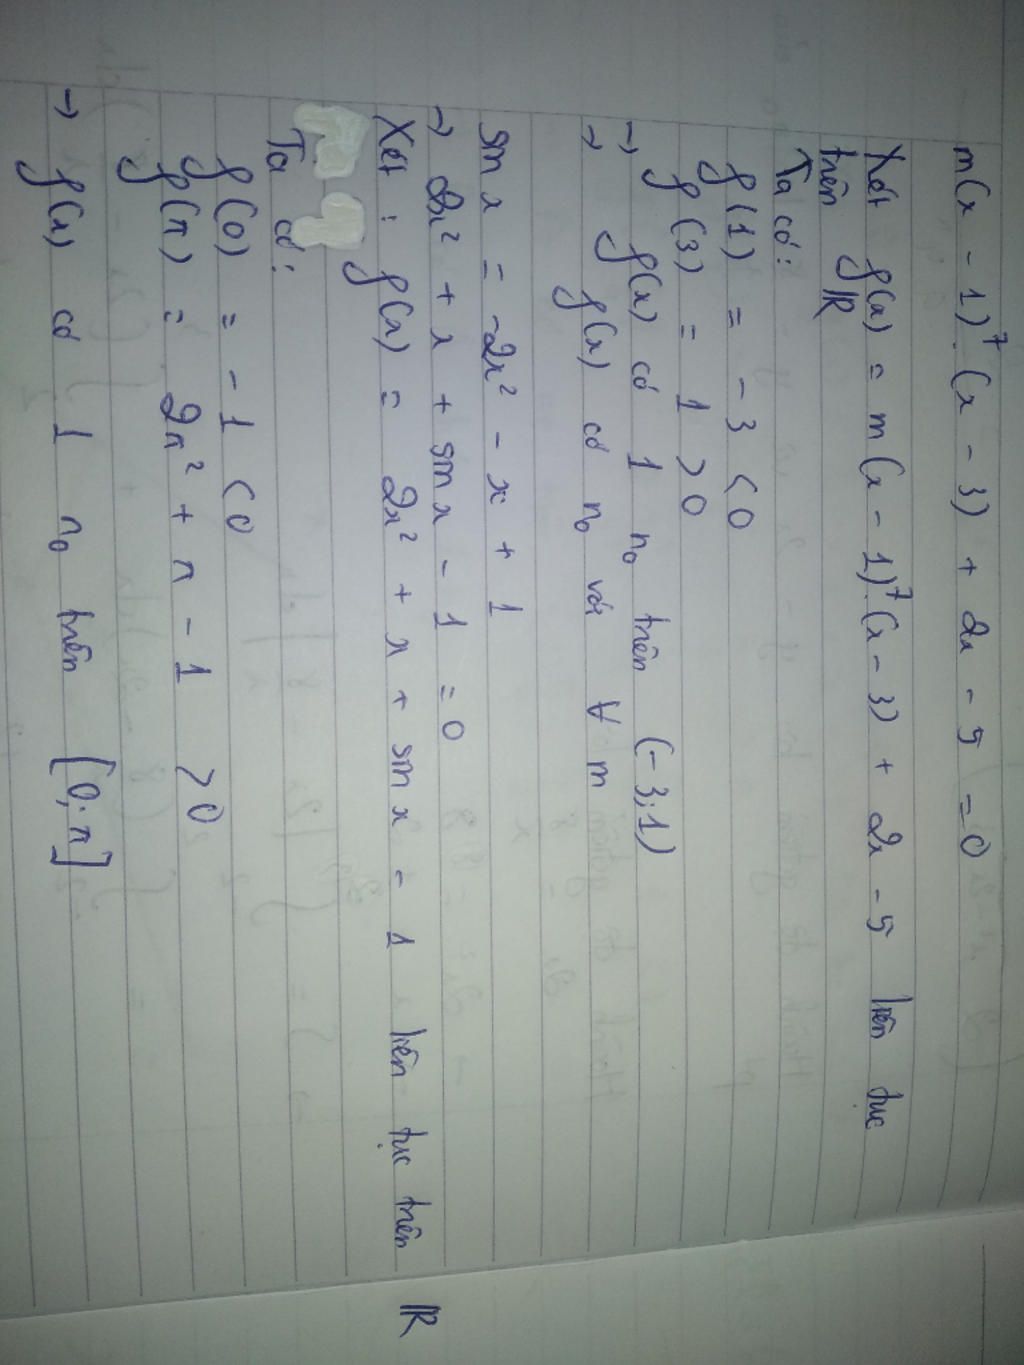 m(x - 1)⁷.(x - 3) + 2x - 5 = 0
Xét f(x) = m(x - 1)⁷.(x - 3) + 2x - 5 liên tục
trên ℝ
Ta có:
f(1) = - 3 < 0
f(3) = 1 > 0
→ f(x) có 1 n₀ trên (-3;1)
→ f(x) có n₀ với ∀ m
sin x = -2x² - x + 1
→ 2x² + x + sin x - 1 = 0
Xét : f(x) = 2x² + x + sin x - 1 liên tục trên ℝ
Ta có:
f(0) = - 1 < 0
f(π) = 2π² + π - 1 > 0
→ f(x) có 1 n₀ trên [0;π]